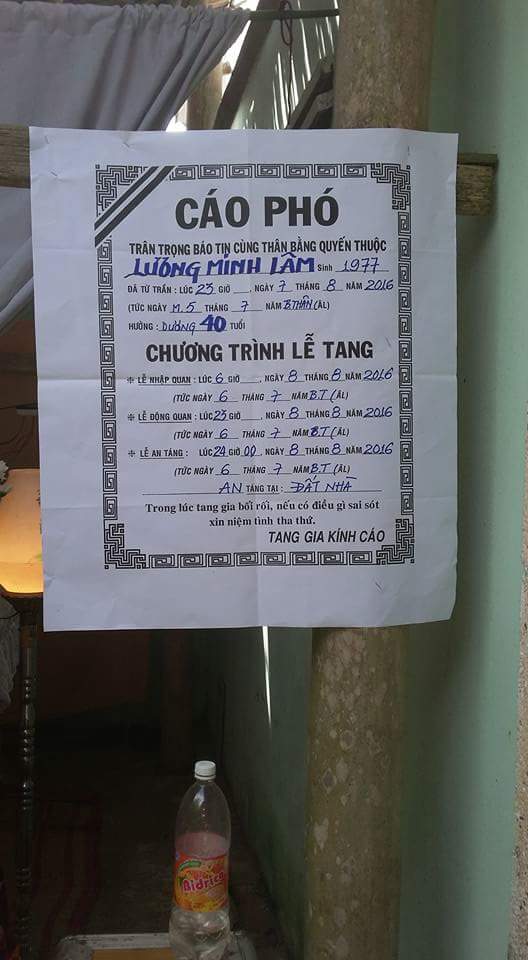 CÁO PHÓ
TRÂN TRỌNG BÁO TIN CÙNG THÂN BẰNG QUYẾN THUỘC
LƯƠNG MINH LÂM Sinh 1977
ĐÃ TỪ TRẦN : LÚC 23 GIỜ NGÀY 7 THÁNG 8 NĂM 2016
(TỨC NGÀY M.5 THÁNG 7 NĂM B.THÂN (ÂL)
HƯỞNG : DƯƠNG 40 TUỔI
CHƯƠNG TRÌNH LỄ TANG
❉ LỄ NHẬP QUAN : LÚC 6 GIỜ , NGÀY 8 THÁNG 8 NĂM 2016
(TỨC NGÀY 6 THÁNG 7 NĂM B.T (ÂL)
❉ LỄ ĐỘNG QUAN : LÚC 23 GIỜ , NGÀY 8 THÁNG 8 NĂM 2016
(TỨC NGÀY 6 THÁNG 7 NĂM B.T (ÂL)
❉ LỄ AN TÁNG : LÚC 24 GIỜ 00, NGÀY 8 THÁNG 8 NĂM 2016
(TỨC NGÀY 6 THÁNG 7 NĂM B.T (ÂL)
AN TÁNG TẠI : ĐẤT NHÀ
Trong lúc tang gia bối rối, nếu có điều gì sai sót
xin niệm tình tha thứ.
TANG GIA KÍNH CÁO
Bidrico